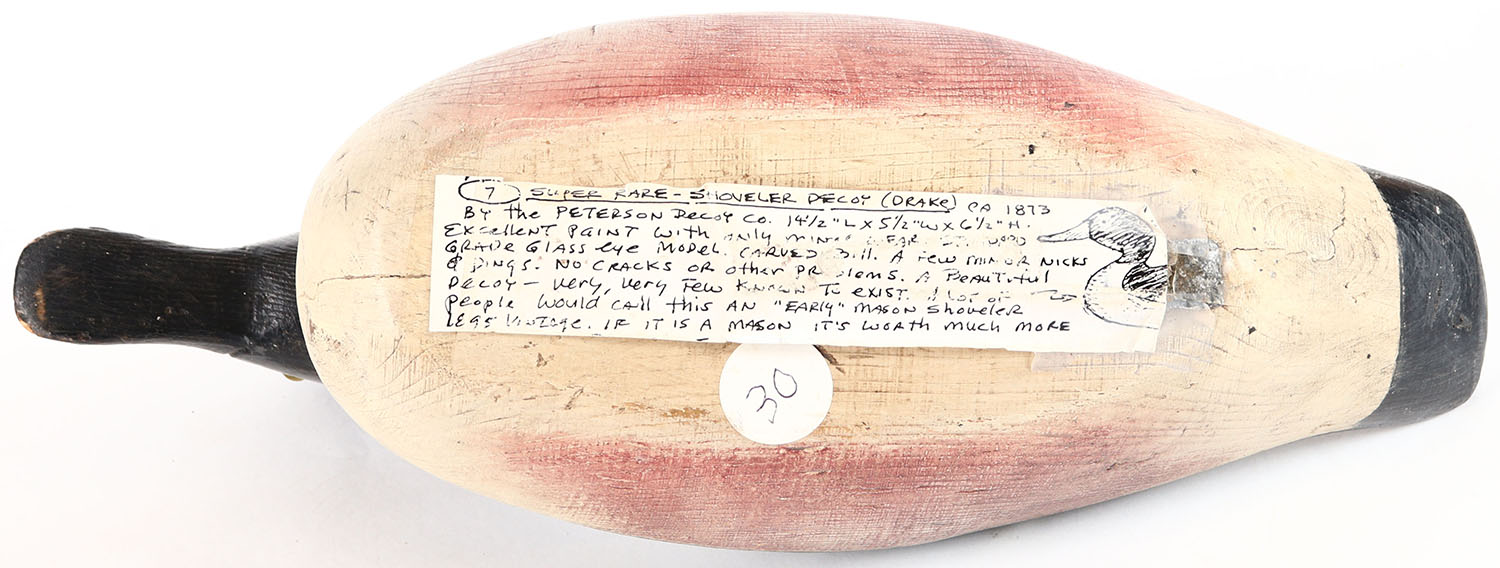 7 SUPER RARE - SHOVELER DECOY (DRAKE) CA 1873
BY the PETERSON DECOY CO. 14 1/2" L X 5 1/2" W X 6 1/2" H.
EXCELLENT PAINT WITH only minor WEAR.
GRADE GLASS eye MODEL. CARVED Bill. A FEW MINOR NICKS
& DINGS. NO CRACKS OR other PROBLEMS. A BEAUTIFUL
DECOY - VERY, VERY FEW KNOWN TO EXIST. A LOT OF
People WOULD CALL this AN "EARLY" MASON Shoveler
Vintage. IF IT IS A MASON IT'S WORTH MUCH MORE
30